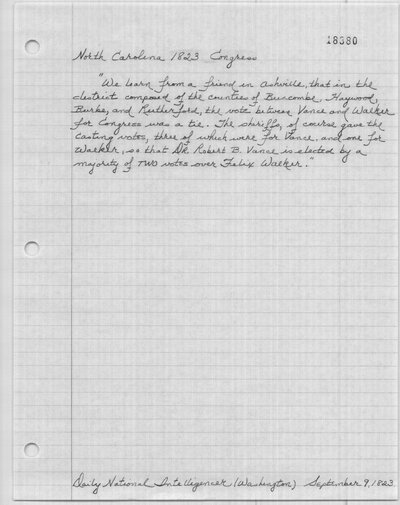 18380
North Carolina 1823 Congress
"We learn from a friend in Ashville, that in the
district composed of the counties of Buncombe, Haywood,
Burke, and Rutherford, the vote between Vance and Walker
for Congress was a tie. The shiriffs, of course gave the
casting votes, three of which were for Vance, and one for
Walker, so that DR. Robert B. Vance is elected by a
majority of TWO votes over Felix Walker."
Daily National Intelligencer (Washington) September 9, 1823